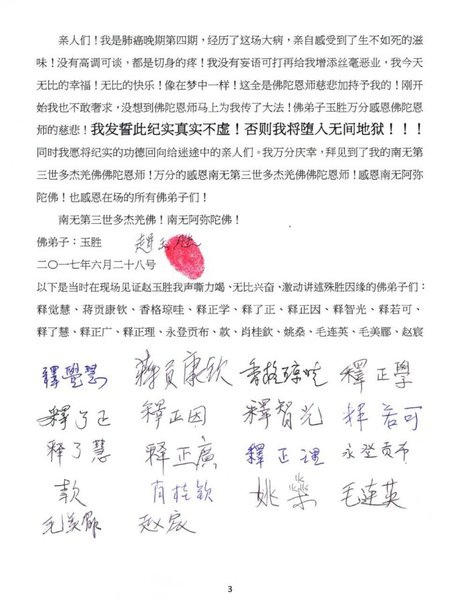 亲人们！我是肺癌晚期第四期，经历了这场大病，亲自感受到了生不如死的滋
味！没有高调可谈，都是切身的疼！我没有妄语可打再给我增添丝毫恶业，我今天
无比的幸福！无比的快乐！像在梦中一样！这全是佛陀恩师慈悲加持予我的！刚开
始我也不敢奢求，没想到佛陀恩师马上为我传了大法！佛弟子玉胜万分感恩佛陀恩
师的慈悲！我发誓此纪实真实不虚！否则我将堕入无间地狱！！！
同时我愿将纪实的功德回向给迷途中的亲人们。我万分庆幸，拜见到了我的南无第
三世多杰羌佛佛陀恩师！万分的感恩南无第三世多杰羌佛佛陀恩师！感恩南无阿弥
陀佛！也感恩在场的所有佛弟子们！
南无第三世多杰羌佛！南无阿弥陀佛！
佛弟子：玉胜 趙玉胜
二〇一七年六月二十八号
以下是当时在现场见证赵玉胜我声嘶力竭、无比兴奋、激动讲述殊胜因缘的佛弟子们：
释觉慧、蒋贡康钦、香格琼哇、释正学、释了正、释正因、释智光、释若可、
释了慧、释正广、释正理、永登贡布、款、肖桂欽、姚燊、毛连英、毛美郿、赵宸
釋覺慧 蒋贡康钦 香格琼哇 釋正學
釋了正 釋正因 釋智光 释若可
释了慧 释正廣 釋正理 永登贡布
款 肖桂欽 姚燊 毛连英
毛美郿 赵宸
3